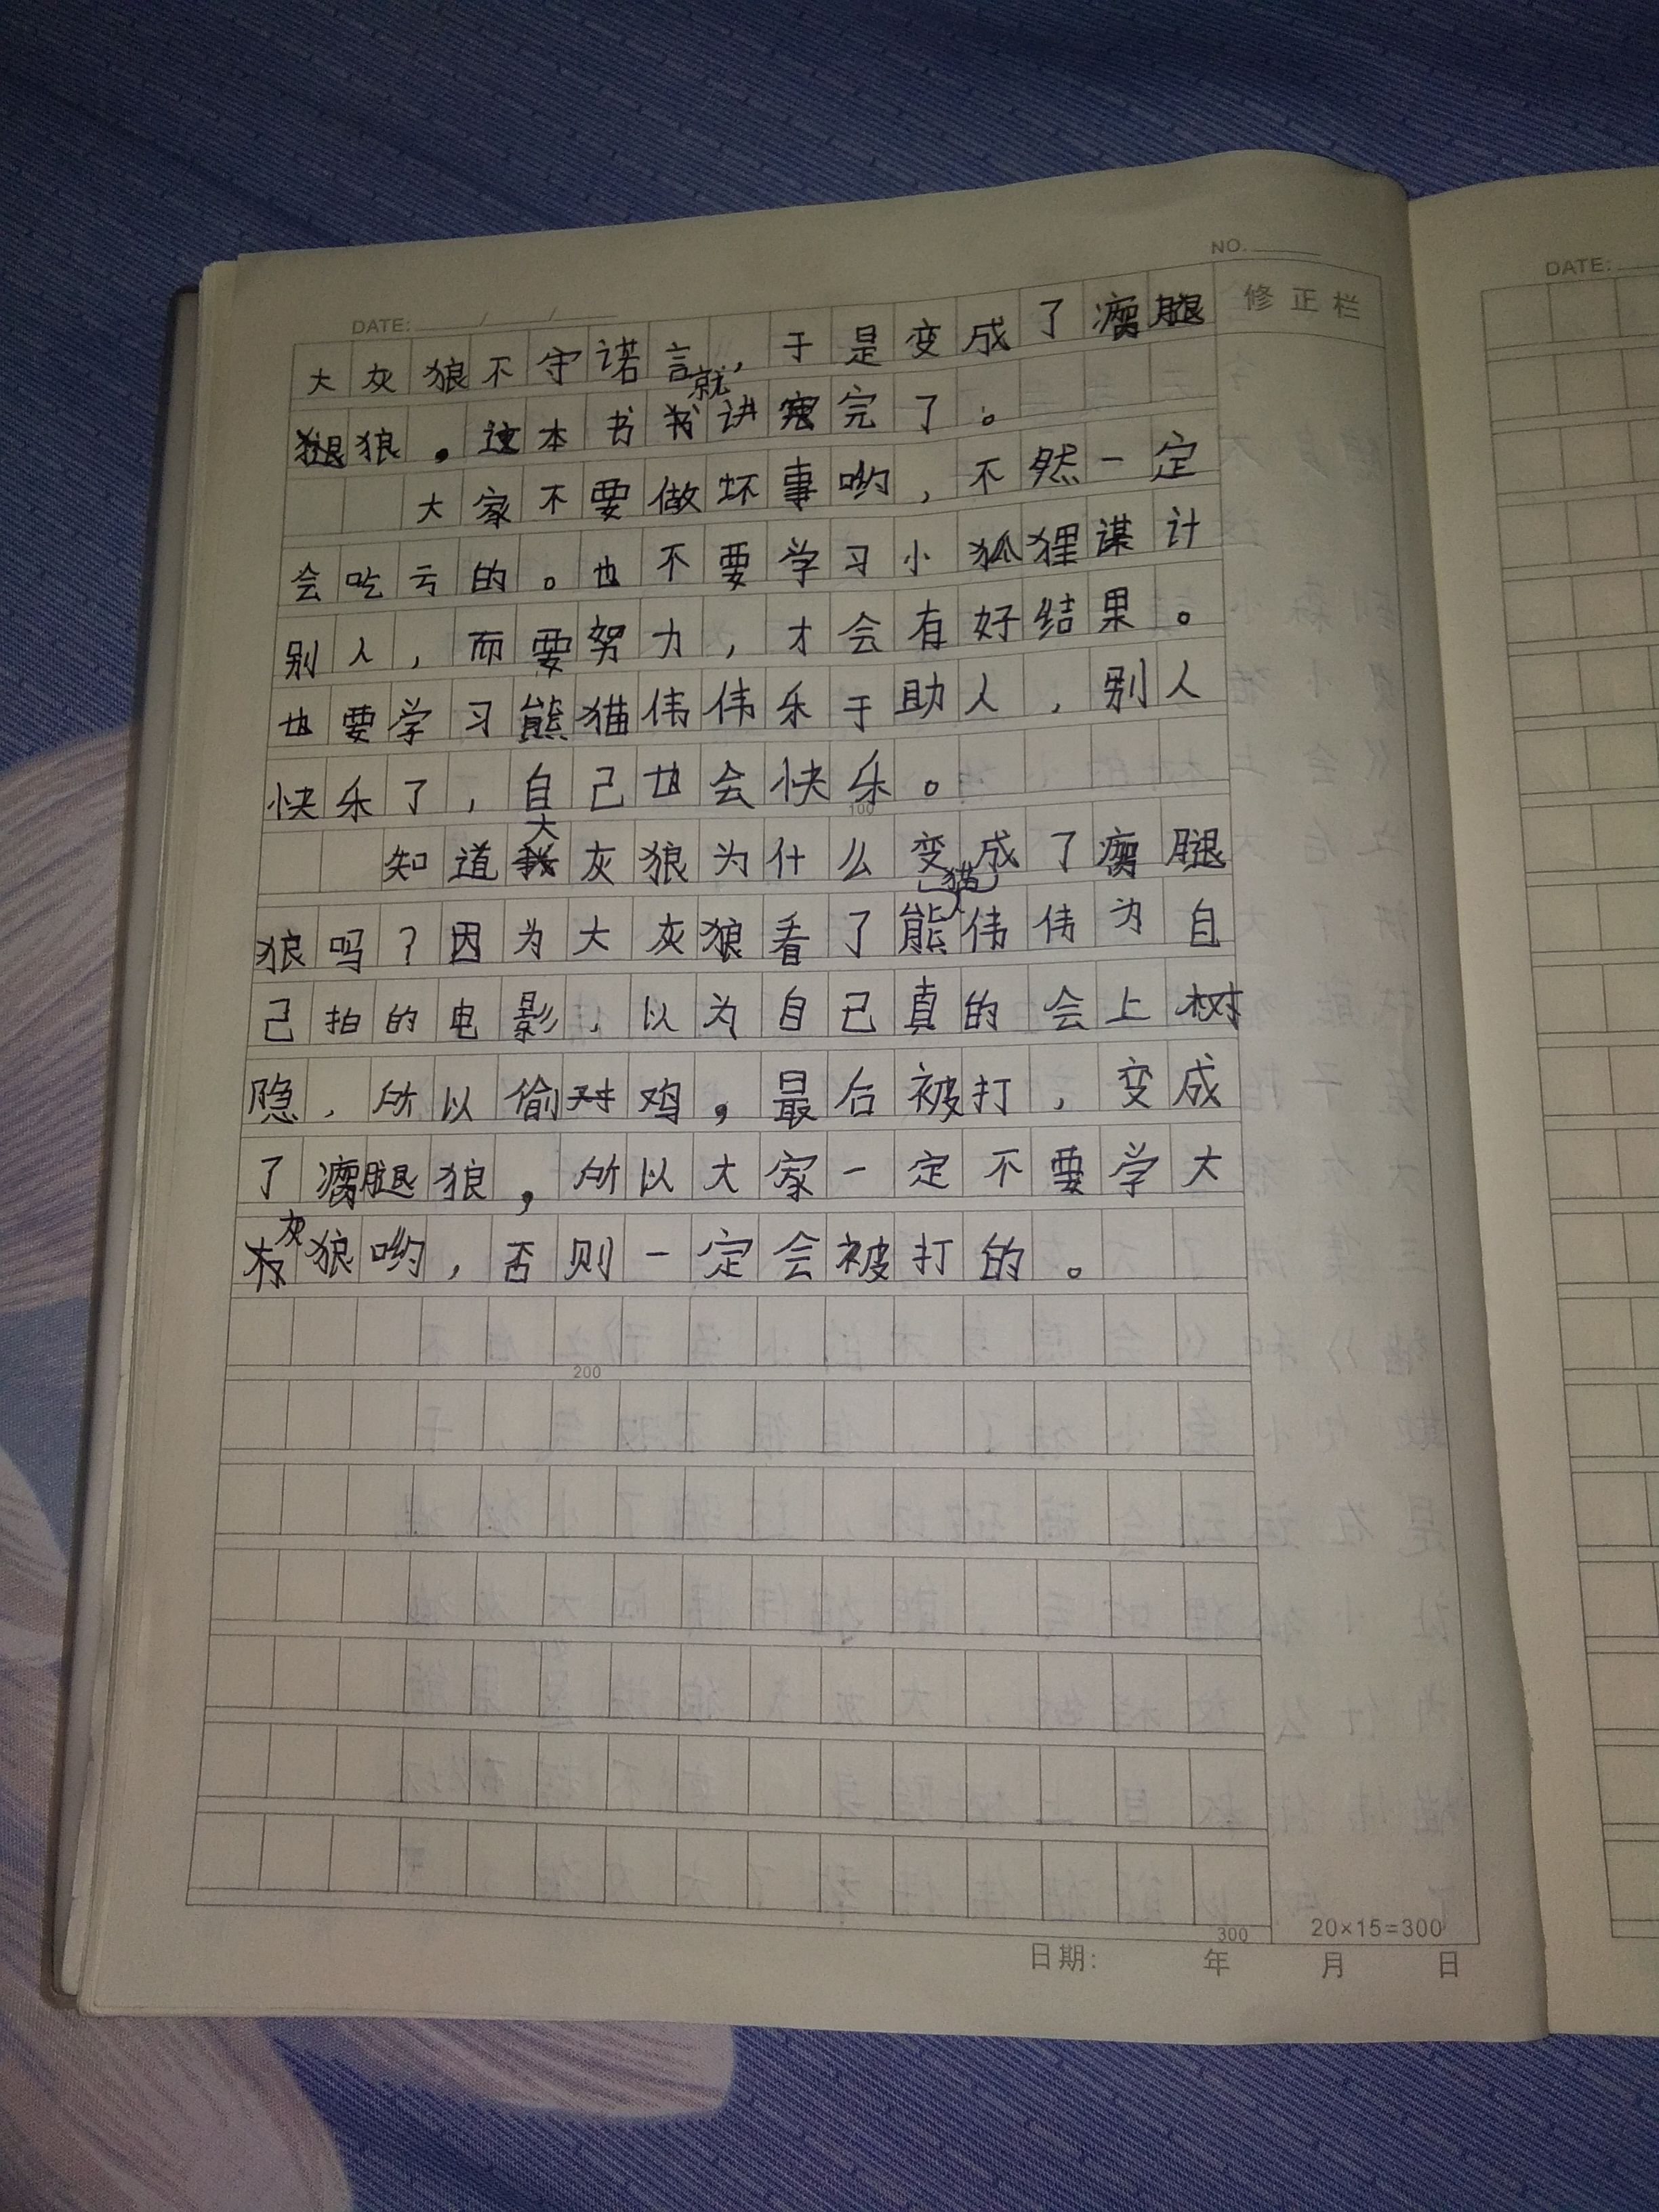 NO.
DATE: / /
DATE:
修正栏
大灰狼不守诺言，于是变成了瘸腿
狼。这本书就讲完了。
大家不要做坏事哟，不然一定
会吃亏的。也不要学习小狐狸谋计
别人，而要努力，才会有好结果。
也要学习熊猫伟伟乐于助人，别人
快乐了，自己也会快乐。
100
知道大灰狼为什么变成了瘸腿
狼吗？因为大灰狼看了熊猫伟伟为自
己拍的电影，以为自己真的会上树
隐，所以偷鸡，最后被打，变成
了瘸腿狼，所以大家一定不要学大
灰狼哟，否则一定会被打的。
200
300
20×15=300
日期： 年 月 日